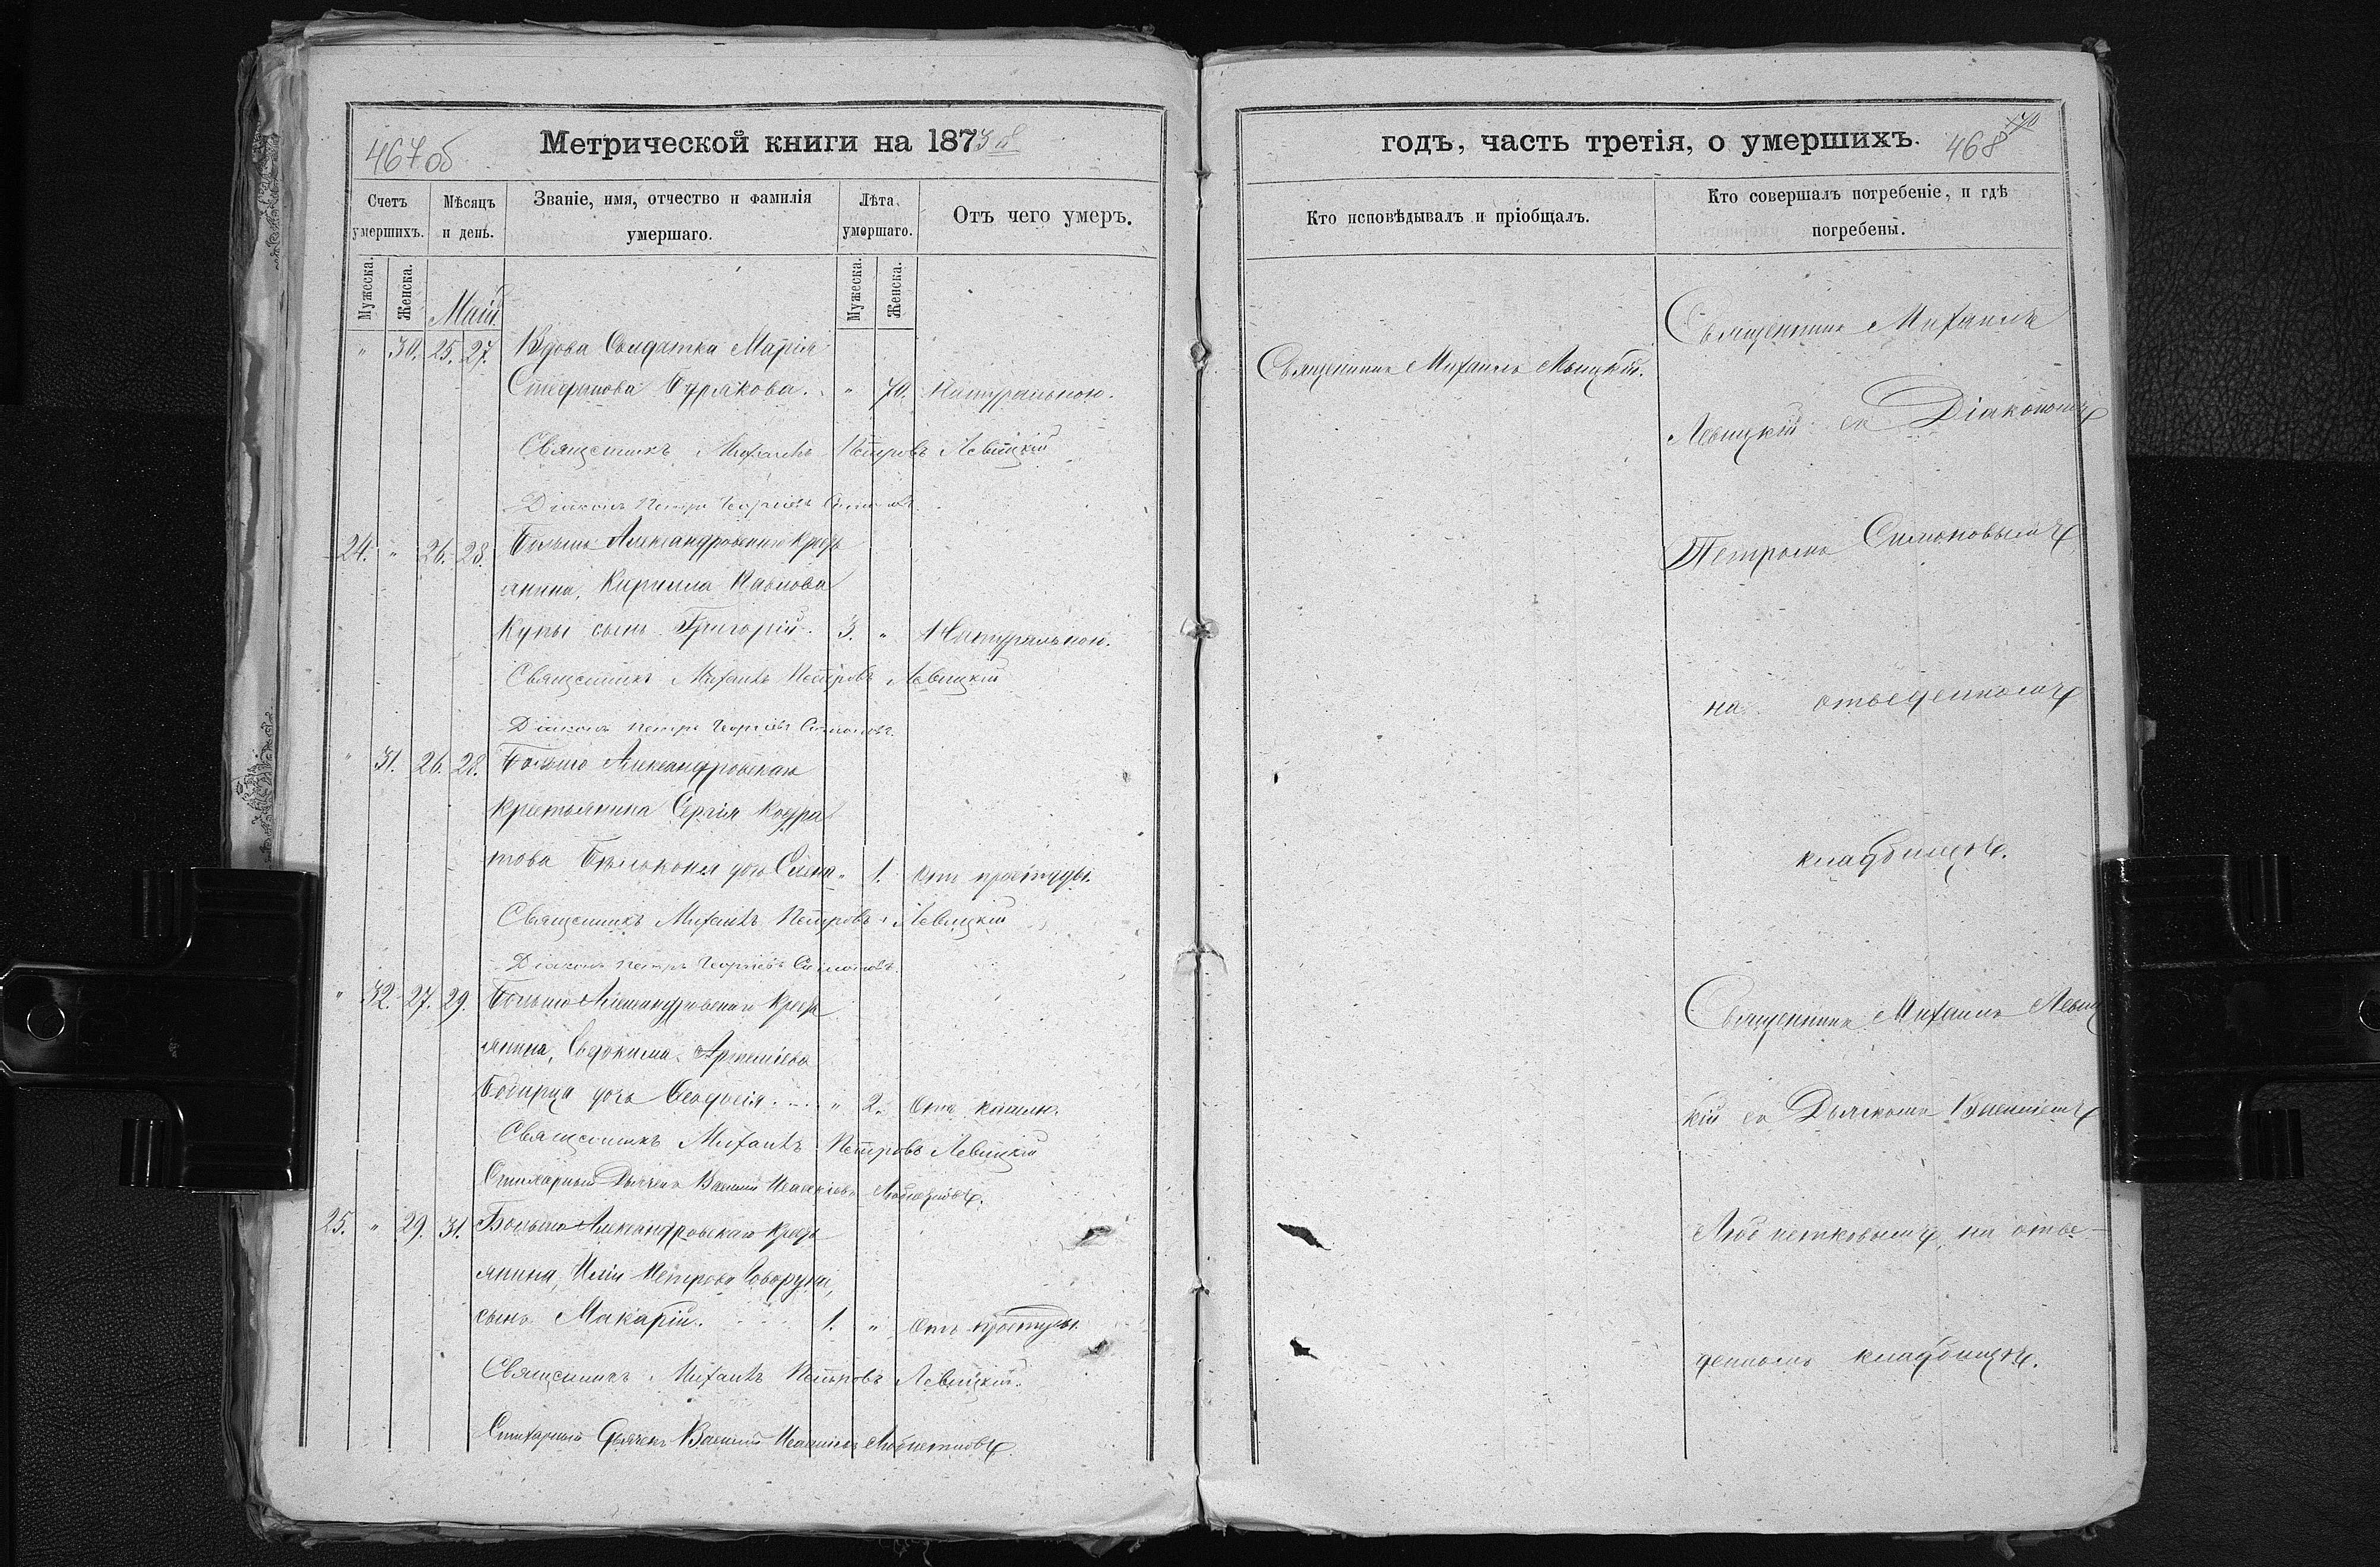 467 об
Метрической книги на 1873 й
Счетъ умершихъ.
Мѣсяцъ и день.
Званіе, имя, отчество и фамилія умершаго.
Лѣта умершаго.
Отъ чего умеръ.
Мужеска. Женска. Май. Мужеска. Женска.
" 30. 25. 27. Вдова Солдатка Марія
Стефанова Бурлакова. " 70. Натуральною.
Священникъ Михаилъ Петровъ Левицкій
Діаконъ Петръ Георгіевъ Симоновъ.
24. " 26. 28. Больше Александровскаго крестъ
янина, Кирилла Павлова
Купы сынъ Григорій. 3. " Натуральною.
Священникъ Михаилъ Петровъ Левицкій
Діаконъ Петръ Георгіевъ Симоновъ.
" 31. 26. 28. Больше Александровскаго
крестьянина Сергія Кодра
това дочь 1. Отъ простуды.
Священникъ Михаилъ Петровъ Левицкій
Діаконъ Петръ Георгіевъ Симоновъ.
" 32. 27. 29. Больше Александровскаго крестъ
янина, Евдокима Артеміева
дочь Феодосія. " 2. Отъ кашлю.
Священникъ Михаилъ Петровъ Левицкій
Стихарный Дьячекъ Василій
25. " 29. 31. Больше Александровскаго крестъ
янина, Иліи Петрова Говорухи,
сынъ Макарій. 1. " Отъ простуды.
Священникъ Михаилъ Петровъ Левицкій.
Стихарный Дьячекъ Василій
годъ, часть третія, о умершихъ.
468
Кто исповѣдывалъ и пріобщалъ.
Кто совершалъ погребеніе, и гдѣ погребены.
Священникъ Михаилъ Левицкій.
Священникъ Михаилъ
Левицкій съ Діакономъ
Петромъ Симоновымъ
на отведенномъ
кладбищѣ.
Священникъ Михаилъ Левиц
кій съ Дьячкомъ Василіемъ
на отве-
денномъ кладбищѣ.